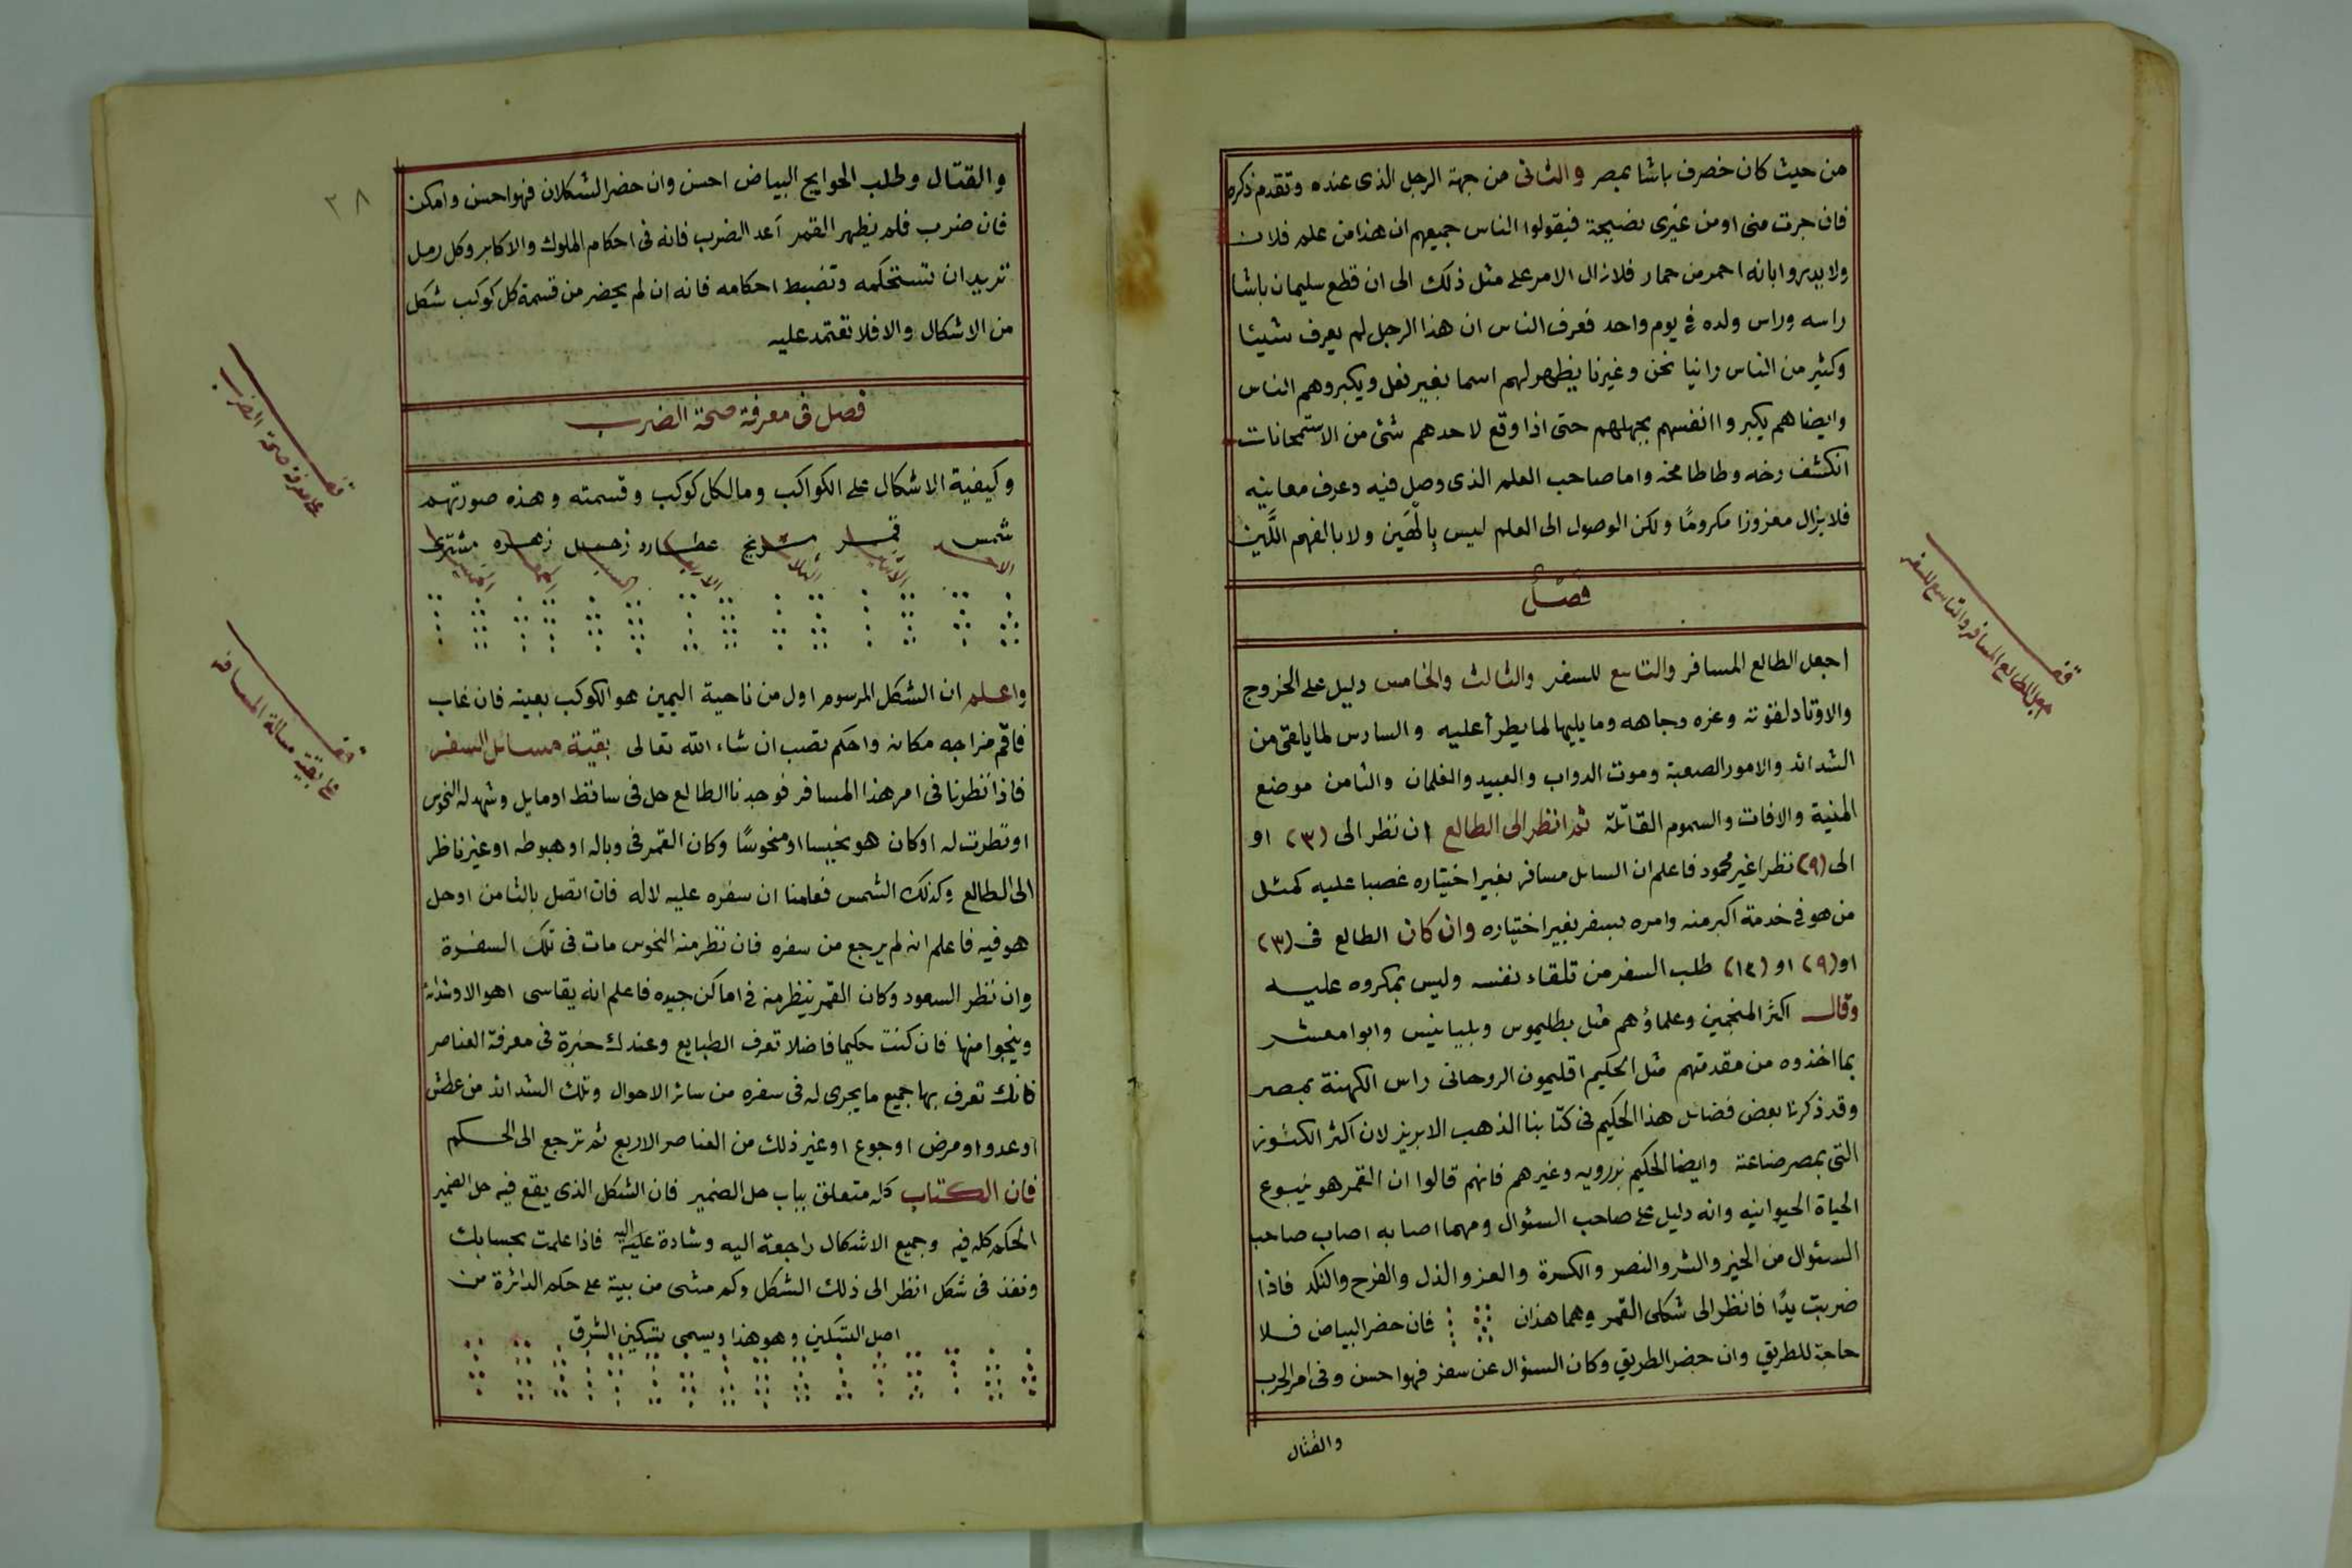 من حيث كان خضرف باشا بمصر والثانى من جهة الرجل الذى عنده وتقدم ذكره
فان جرت منى او من غيرى نصيحة فيقولوا الناس جميعهم ان هذا من علم فلان
ولا يدروا بانه احمر من حمار فلا زال الامر على مثل ذلك الى ان قطع سليمان باشا
راسه وراس ولده فى يوم واحد فعرف الناس ان هذا الرجل لم يعرف شيئا
وكثير من الناس راينا نحن وغيرنا يظهر لهم اسما بغير فعل ويكبروهم الناس
وايضا هم يكبروا انفسهم بجهلهم حتى اذا وقع لاحدهم شئ من الاستمحانات
انكشف رخه وطاطا مخه واما صاحب العلم الذى وصل فيه وعرف معانيه
فلا يزال معزوزا مكرومًا ولكن الوصول الى العلم ليس بِالْهَين ولا بالفهم اللَّين
فصل
اجعل الطالع المسافر والتاسع للسفر والثالث والخامس دليل على الخروج
والاوتاد لقوته وعزه وجاهه وما يليها لما يطرأ عليه والسادس لما يلقى من
الشدائد والامور الصعبة وموت الدواب والعبيد والغلمان والثامن موضع
المنية والافات والسموم القاتلة ثم انظر الى الطالع ان نظر الى (٣) او
الى (٩) نظرا غير محمود فاعلم ان السائل مسافر بغير اختياره غصبا عليه كمثل
من هو فى خدمة اكبر منه وامره بسفر بغير اختياره وان كان الطالع فى (٣)
او (٩) او (١٢) طلب السفر من تلقاء نفسه وليس بمكروه عليه
وقال اكثر المنجمين وعلماؤهم مثل بطليموس وبليانيس وابوا معشر
بما اخذوه من مقدمتهم مثل الحكيم اقليمون الروحانى راس الكهنة بمصر
وقد ذكرنا بعض فضائل هذا الحكيم فى كتابنا الذهب الابريز لان اكثر الكنوز
التى بمصر صناعته وايضا الحكيم وغيرهم فانهم قالوا ان القمر هو ينبوع
الحياة الحيوانيه وانه دليل على صاحب السئوال ومهما اصابه اصاب صاحب
السئوال من الخير والشر والنصر والكسرة والعز والذل والفرح والنكد فاذا
ضربت يدًا فانظر الى شكلى القمر وهما هذان فان حضر البياض فلا
حاجة للطريق وان حضر الطريق وكان السؤال عن سفر فهوا حسن وفى امر الحرب
والقتال
اجعل الطالع المسافر والتاسع للسفر
٣٨
والقتال وطلب الحوايج البياض احسن وان حضر الشكلان فهوا حسن وامكن
فان ضرب فلم يظهر القمر أعد الضرب فانه فى احكام الملوك والاكابر وكل رمل
تريد ان تستحكمه وتضبط احكامه فانه ان لم يحضر من قسمة كل كوكب شكل
من الاشكال والا فلا تعتمد عليه
فصل فى معرفة صحة الضرب
وكيفية الاشكال على الكواكب وما لكل كوكب وقسمته وهذه صورتهم
شمس قمر مريخ عطارد زحل زهره مشترى
الاحد الاثنين الثلاث الاربعا السبت الجمعة الخميس
واعلم ان الشكل المرسوم اول من ناحية اليمين هو الكوكب بعينه فان غاب
فاقم مزاجه مكانه واحكم تصب ان شاء الله تعالى بقية مسائل السفر
فاذا نظرنا فى امر هذا المسافر فوجدنا الطالع حل فى ساقط او مايل وشهد له النحوس
او نظرت له او كان هو نحيسا او منحوسًا وكان القمر فى وباله او هبوطه او غير ناظر
الى الطالع وكذلك الشمس فعلمنا ان سفره عليه لا له فان اتصل بالثامن او حل
هو فيه فاعلم انه لم يرجع من سفره فان نظر منه النحوس مات فى تلك السفرة
وان نظر السعود وكان القمر ينظر منه فى اماكن جيده فاعلم انه يقاسى اهوالا وشدائد
وينجوا منها فان كنت حكيما فاضلا تعرف الطبايع وعندك خبرة فى معرفة العناصر
فانك تعرف بها جميع ما يجرى له فى سفره من سائر الاحوال وتلك الشدائد من عطش
او عدو او مرض او جوع او غير ذلك من العناصر الاربع ثم ترجع الى الحكم
فان الكتاب كله متعلق بباب حل الضمير فان الشكل الذى يقع فيه حل الضمير
الحكم كله فيه وجميع الاشكال راجعة اليه وشادة عليه اليه فاذا علمت بحسابك
ونفذ فى شكل انظر الى ذلك الشكل وكم مشى من بيته على حكم الدائرة من
اصل التسكين وهو هذا ويسمى بتسكين الشرق
فى معرفة صحة الضرب
بقية مسالة المسافر